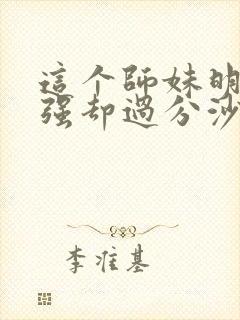 這个師妹明
强却過分沙
李准基